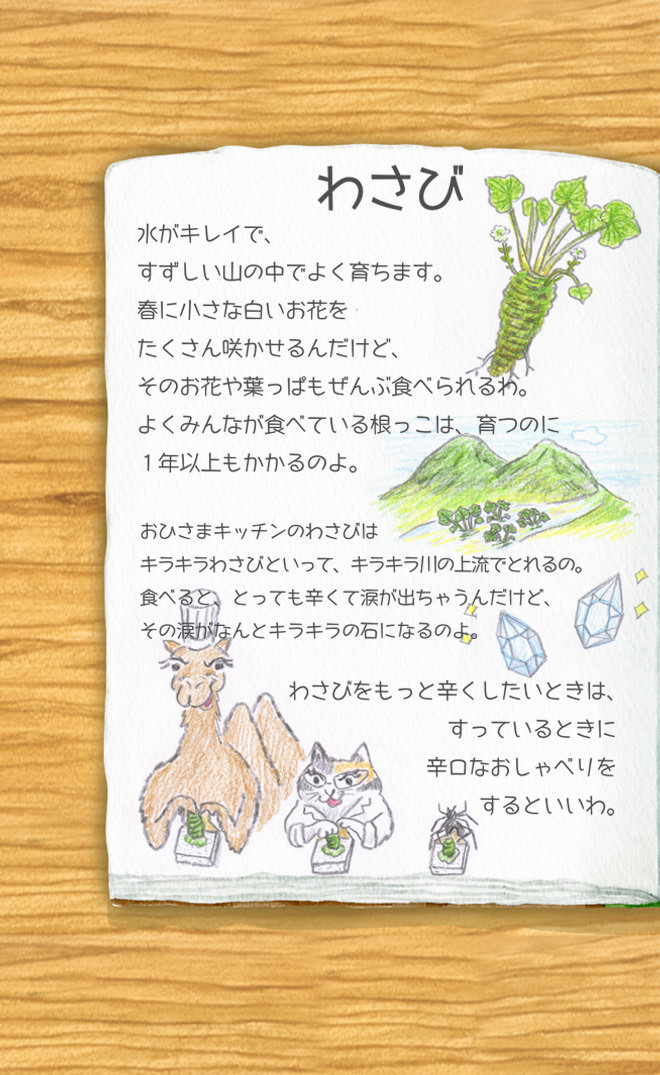 わさび
水がキレイで、
すずしい山の中でよく育ちます。
春に小さな白いお花を
たくさん咲かせるんだけど、
そのお花や葉っぱもぜんぶ食べられるわ。
よくみんなが食べている根っこは、育つのに
１年以上もかかるのよ。
おひさまキッチンのわさびは
キラキラわさびといって、キラキラ川の上流でとれるの。
食べると、とっても辛くて涙が出ちゃうんだけど、
その涙がなんとキラキラの石になるのよ。
わさびをもっと辛くしたいときは、
すっているときに
辛口なおしゃべりを
するといいわ。